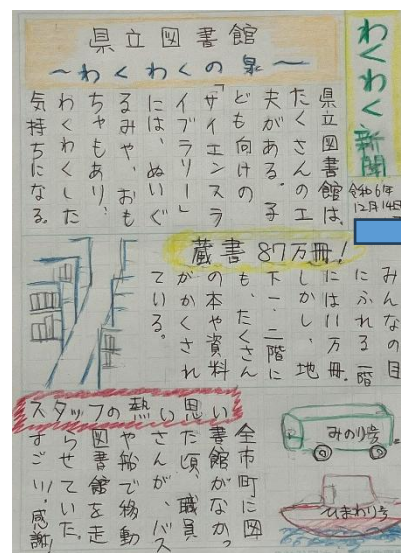 わくわく新聞
令和6年
12月14日
県立図書館
～わくわくの泉～
県立図書館は、
たくさんの工
夫がある。子
ども向けの
「サイエンスラ
イブラリー」
には、ぬいぐ
るみや、おも
ちゃもあり、
わくわくした
気持ちになる。
蔵書87万冊!
みんなの目
にふれる一階
には11万冊。
しかし、地
下一、二階に
も、たくさん
の本や資料
がかくされ
ている。
スタッフの熱い思い
全市町に図
書館がなかっ
た頃、職員
さんが、バス
や船で移動
図書館を走
らせていた。
すごい!感謝!
みのり号
ひまわり号